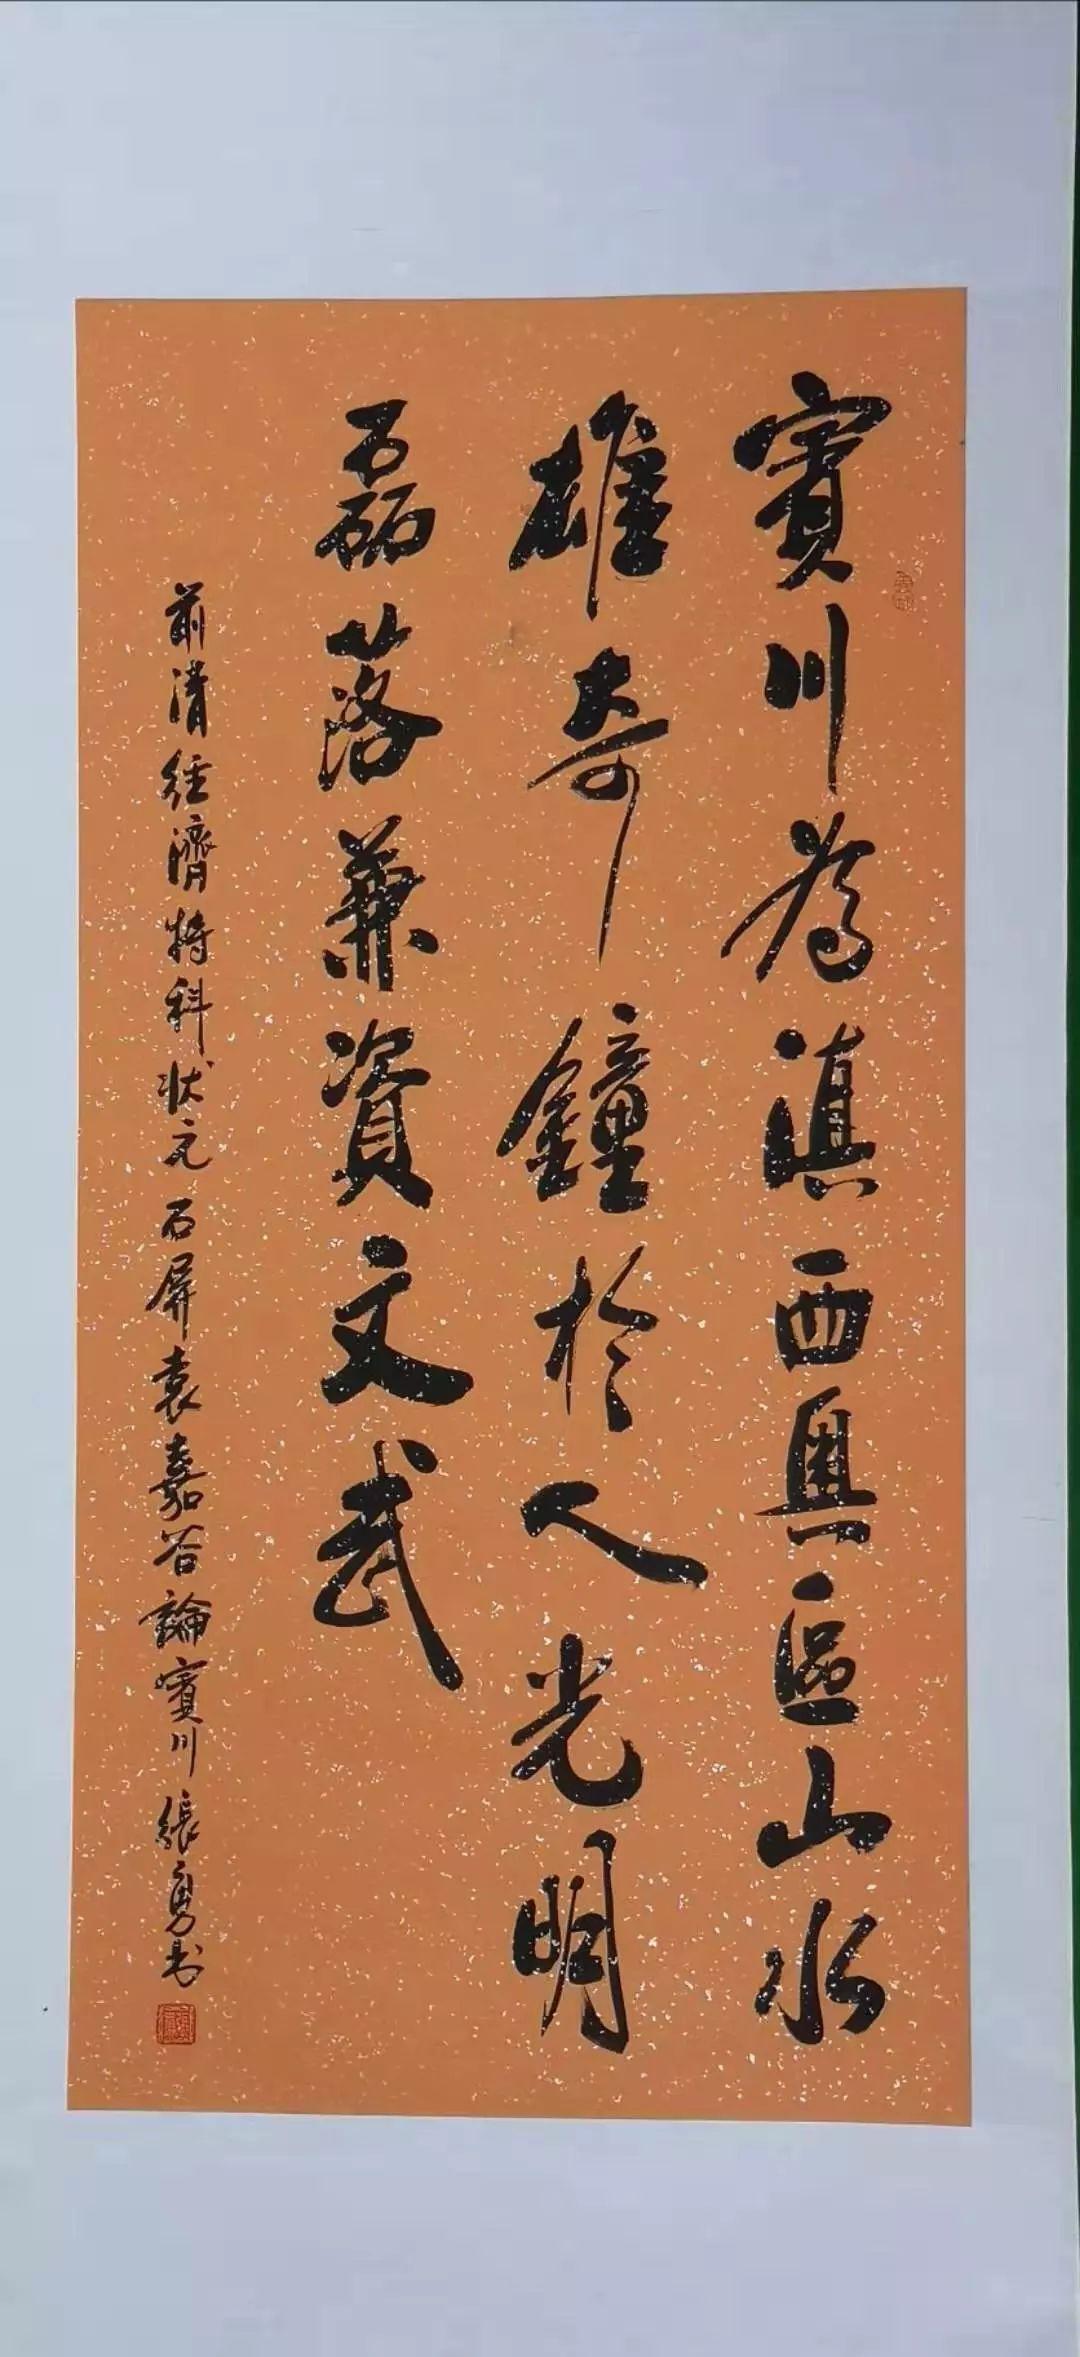 賓川為滇西奧區山水
雄奇鐘於人光明
磊落兼資文武
前清経濟特科状元石屏袁嘉谷論賓川張勇书